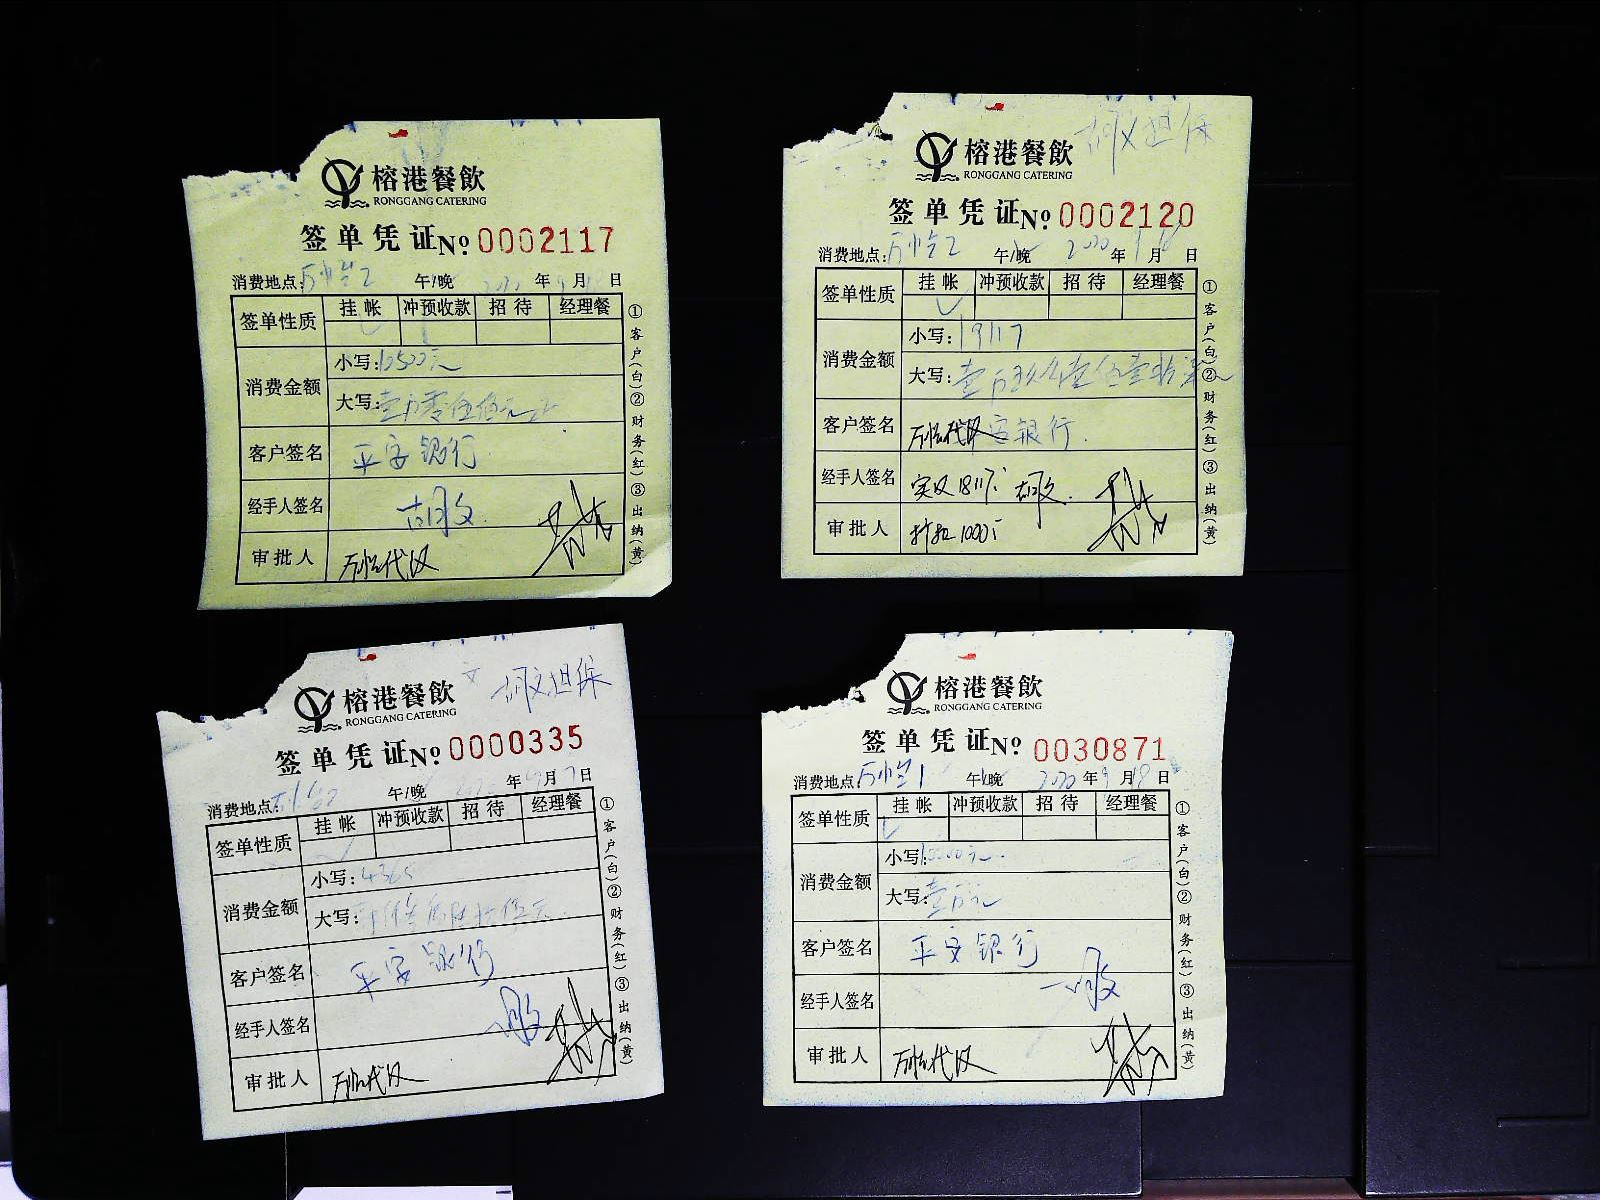 榕港餐飲
RONGGANG CATERING
签单凭证 № 0002117
消费地点: 午/晚 年 月 日
签单性质 挂帐 冲预收款 招待 经理餐
消费金额 小写: 10500元
大写: 壹万零伍佰元正
客户签名 平安银行
经手人签名 胡文
审批人 代收
①客户(白)②财务(红)③出纳(黄)
胡文担保
榕港餐飲
RONGGANG CATERING
签单凭证 № 0002120
消费地点: 午/晚 2020 年 月 日
签单性质 挂帐 冲预收款 招待 经理餐
消费金额 小写: 19117
大写:
客户签名 代收 银行
经手人签名 实收 胡文
审批人 折扣1000
①客户(白)②财务(红)③出纳(黄)
胡文担保
榕港餐飲
RONGGANG CATERING
签单凭证 № 0000335
消费地点: 午/晚 年 9月 7日
签单性质 挂帐 冲预收款 招待 经理餐
消费金额 小写: 4365
大写:
客户签名 平安银行
经手人签名
审批人 代收
①客户(白)②财务(红)③出纳(黄)
榕港餐飲
RONGGANG CATERING
签单凭证 № 0030871
消费地点: 午/晚 2020 年 9 月 19 日
签单性质 挂帐 冲预收款 招待 经理餐
消费金额 小写: 10000元
大写: 壹万元
客户签名 平安银行
经手人签名
审批人 代收
①客户(白)②财务(红)③出纳(黄)